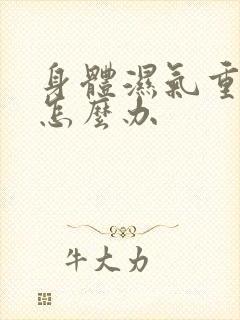 身體濕氣重
怎麼办
牛大力